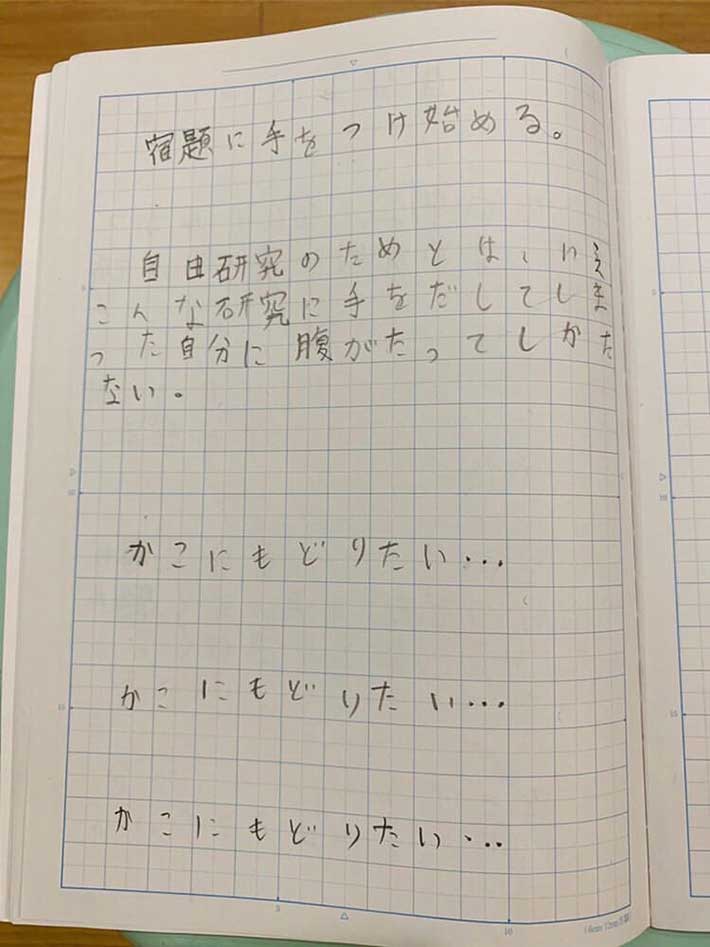 宿題に手をつけ始める。
自由研究のためとは、いえ
こんな研究に手をだしてしま
った自分に腹がたってしかた
ない。
かこにもどりたい…
かこにもどりたい…
かこにもどりたい…
5
10